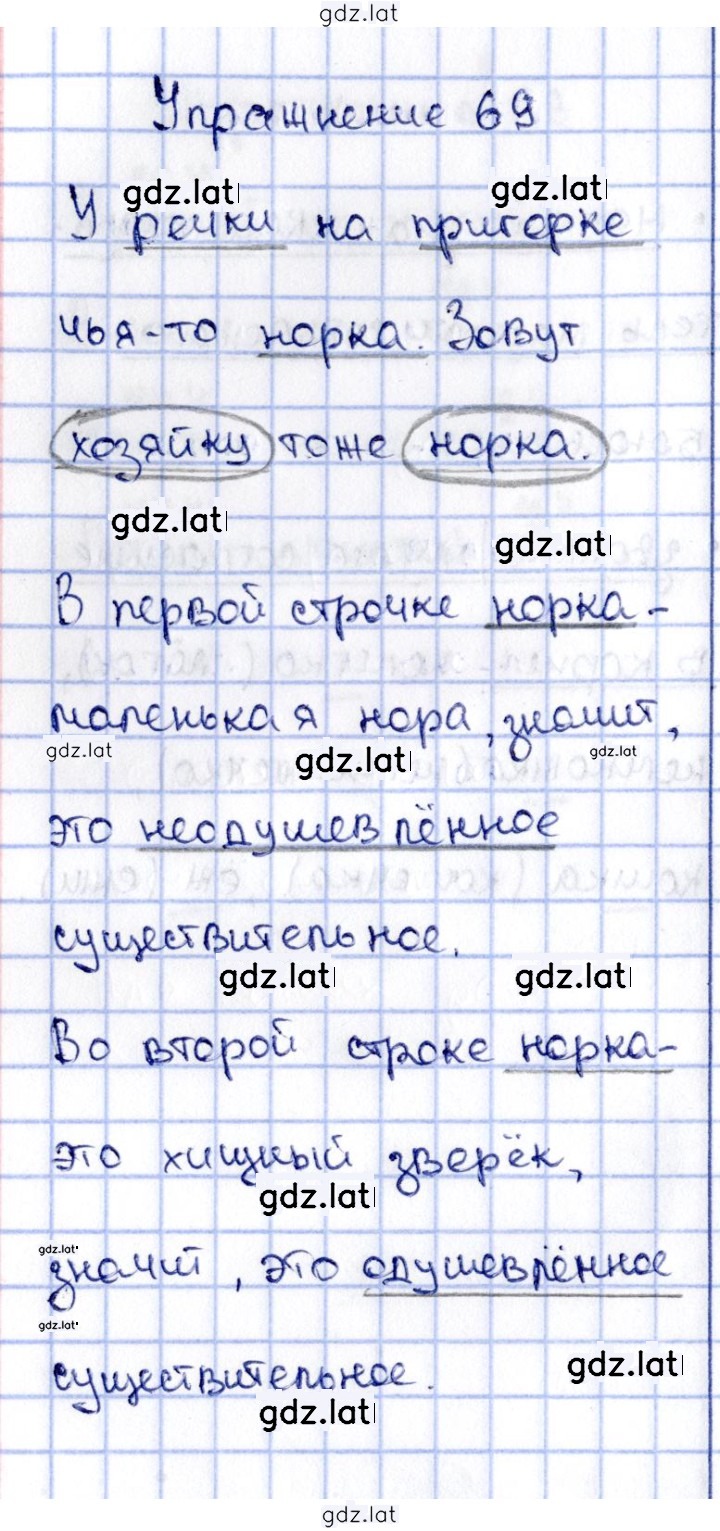 gdz.lat
Упражнение 69
gdz.lat gdz.lat
У речки на пригорке
чья-то норка. Зовут
хозяйку тоже норка.
gdz.lat gdz.lat
В первой строчке норка -
маленькая нора, значит,
gdz.lat gdz.lat gdz.lat
это неодушевлённое
существительное.
gdz.lat gdz.lat
Во второй строке норка-
это хищный зверёк,
gdz.lat
gdz.lat
значит, это одушевлённое
gdz.lat
существительное.
gdz.lat
gdz.lat
gdz.lat